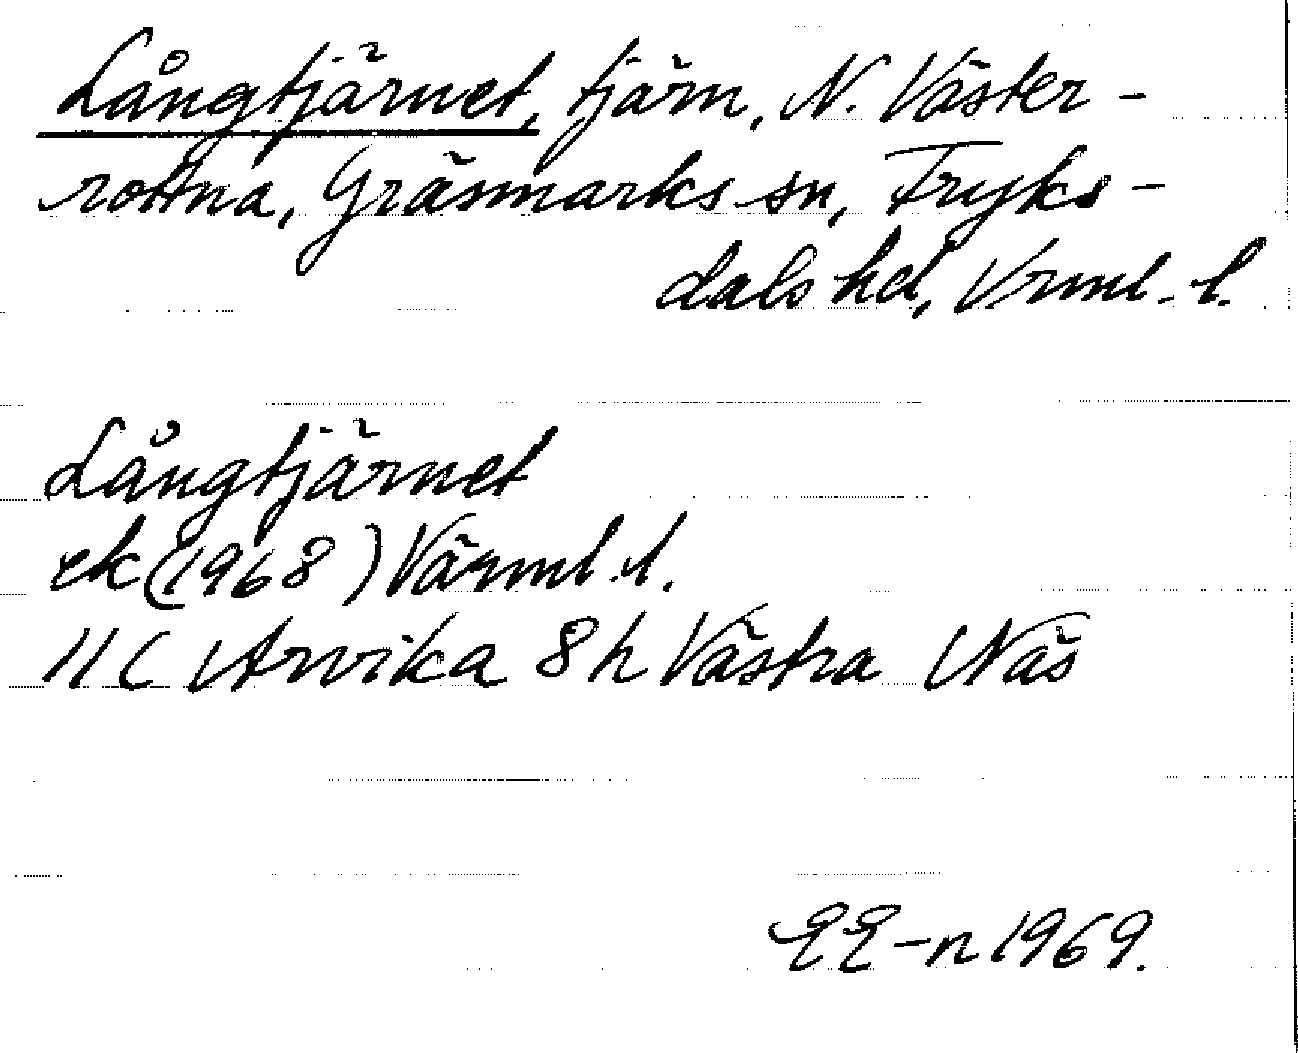 Långtjärnet, tjärn, N. Väster-
rottna, Gräsmarks sn, Fryks-
dals hd, Vrml. l.
Långtjärnet
ek (1968) Värml. l.
11C Arvika 8h Västra Näs
EE-n 1969.